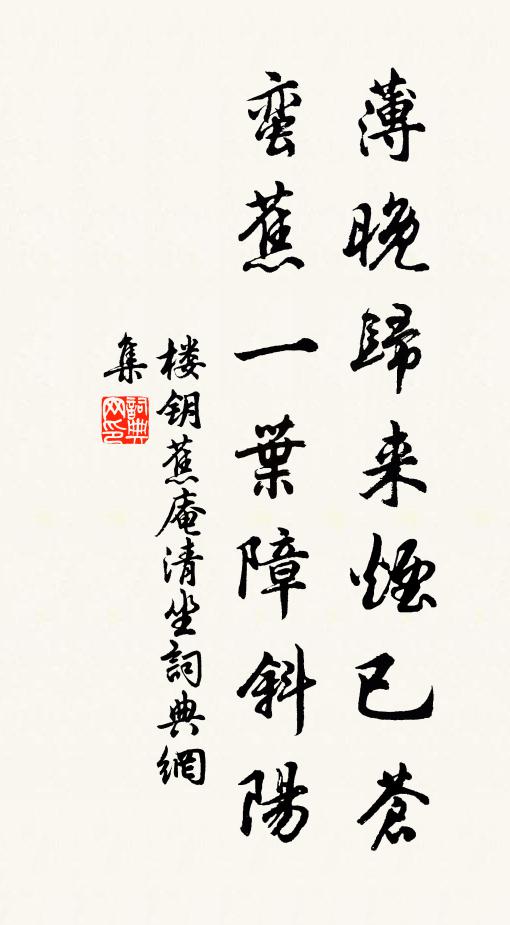 薄晚歸来煙已蒼
蛮蕉一葉障斜陽
楼钥蕉庵清坐詞典網
集
詞典
网印